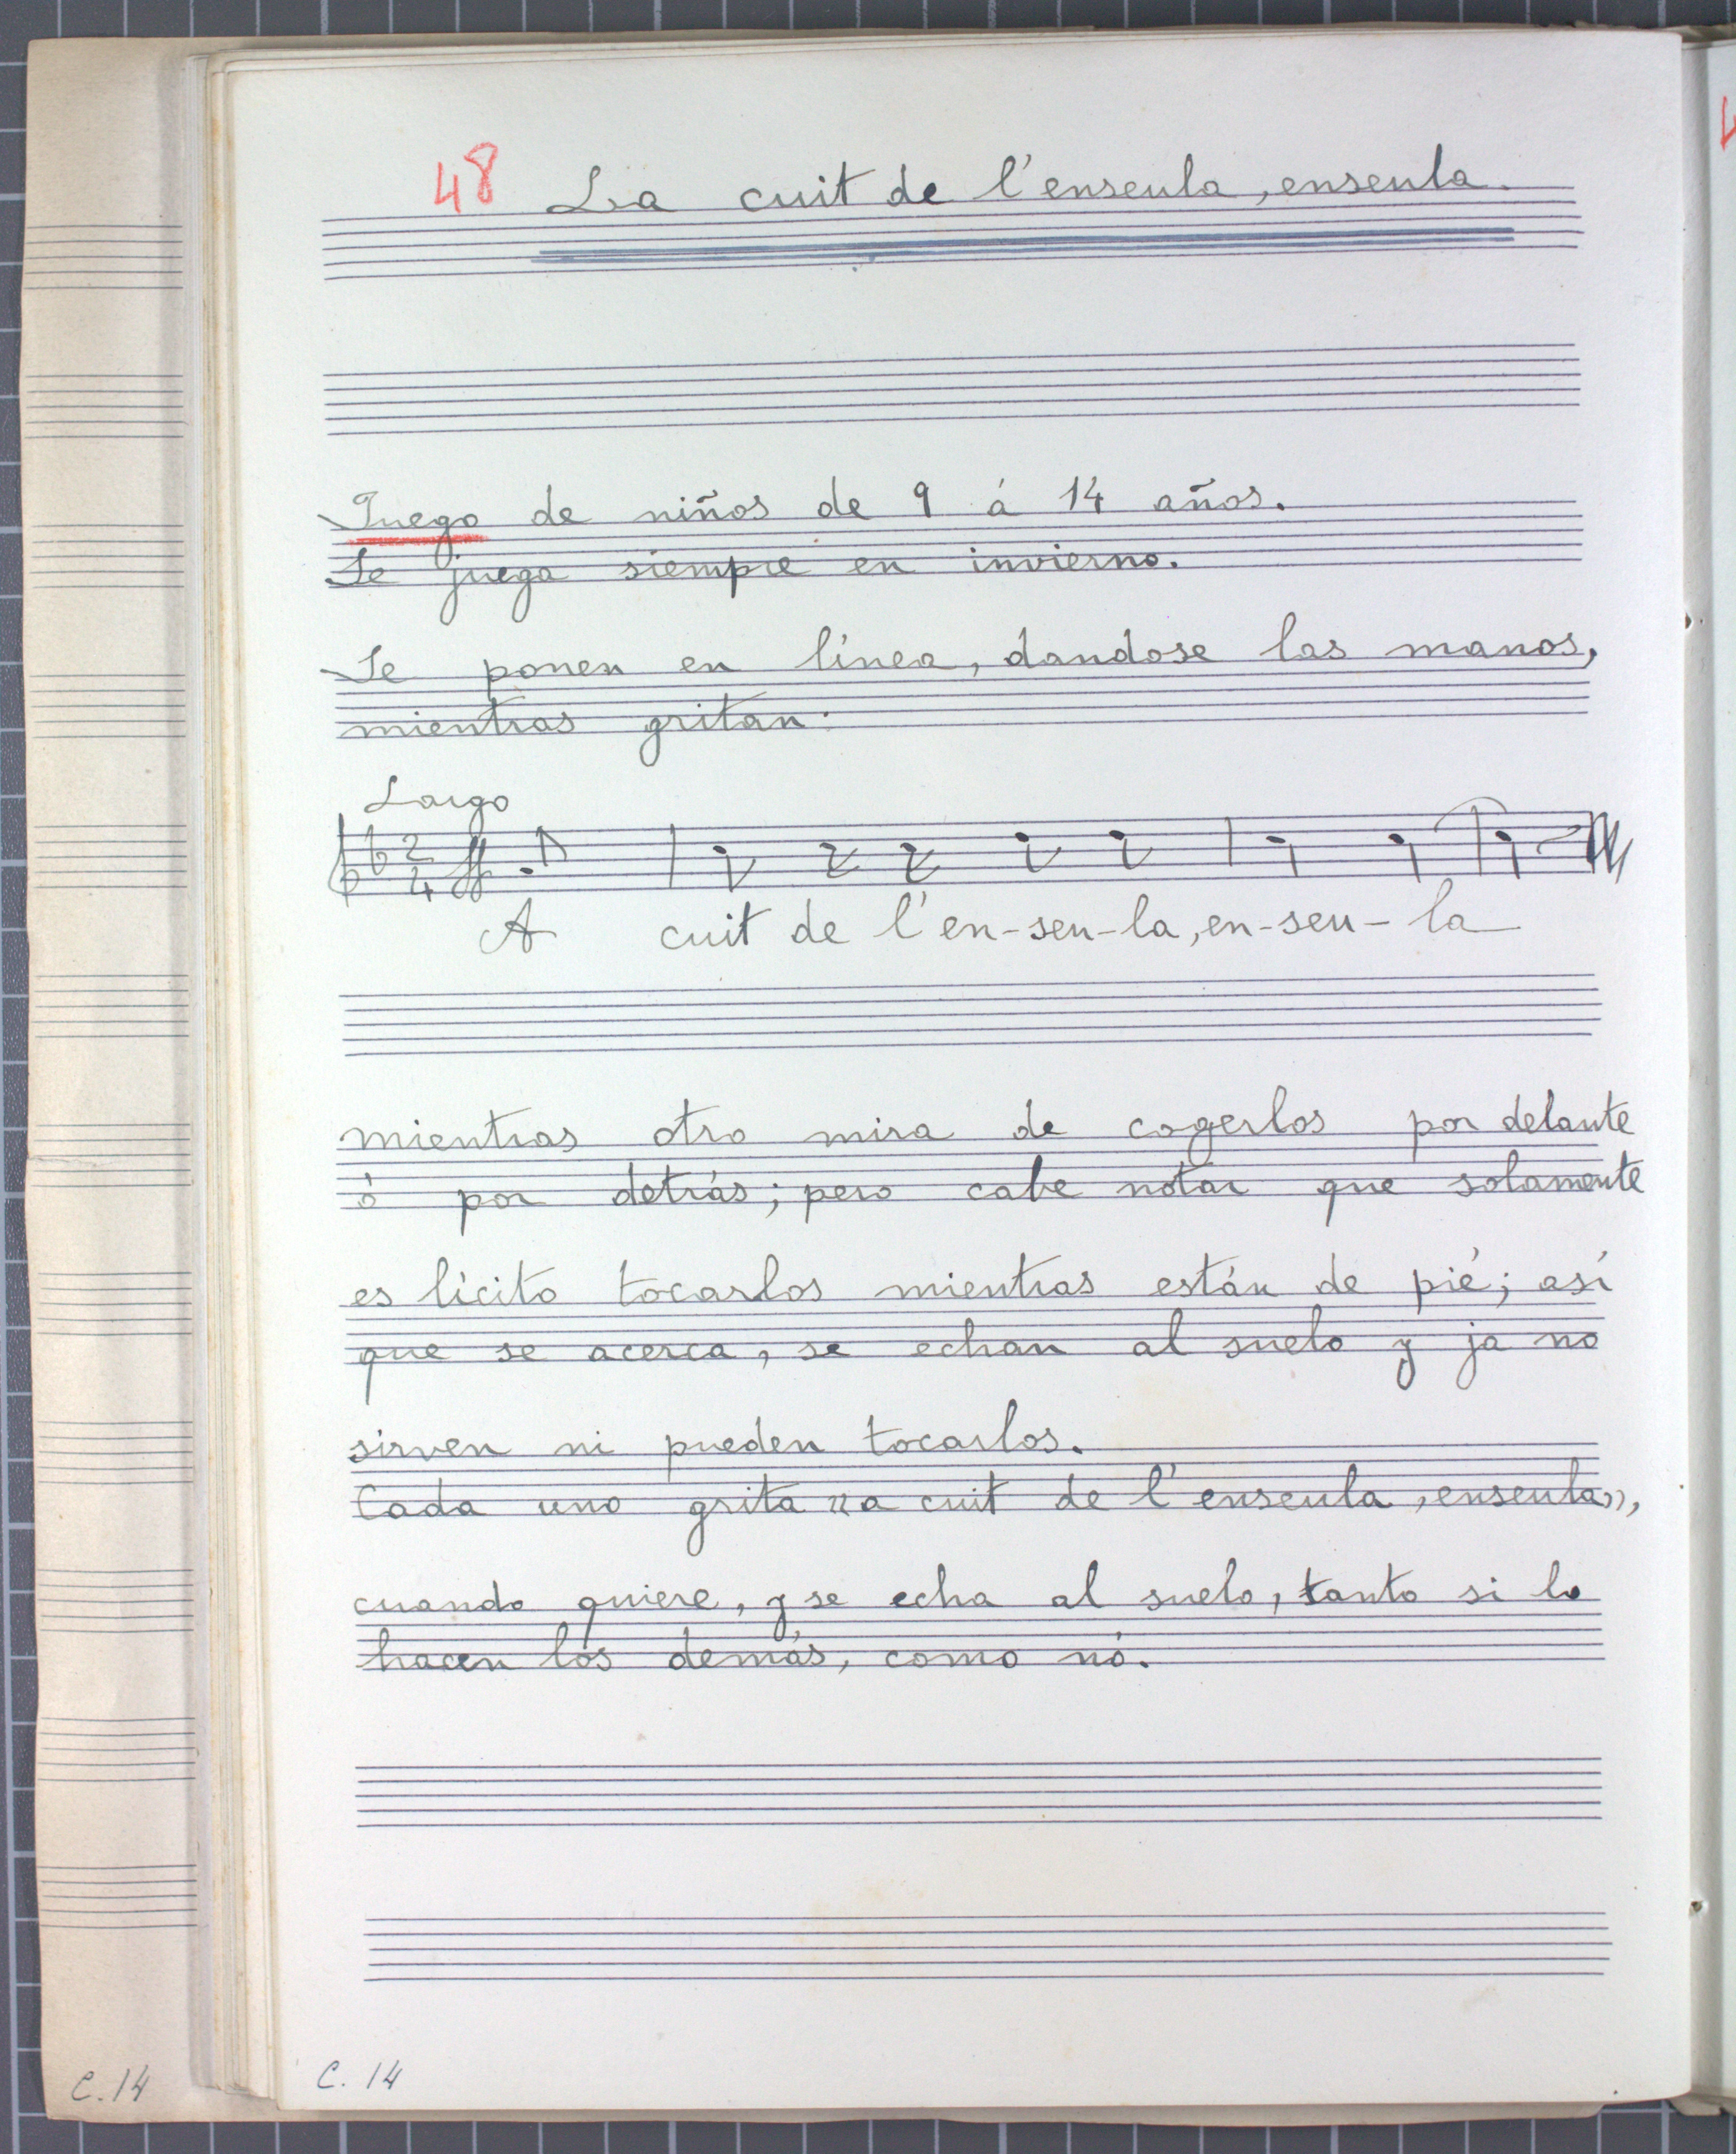 48 La cuit de l'enseula, enseula.
Juego de niños de 9 á 14 años.
Se juega siempre en invierno.
Se ponen en línea, dandose las manos,
mientras gritan:
Largo
2
4
A cuit de l'en-seu-la, en-seu-la
mientras otro mira de cogerlos por delante
ó por detrás; pero cabe notar que solamente
es lícito tocarlos mientras están de pié; así
que se acerca, se echan al suelo y ja no
sirven ni pueden tocarlos.
Cada uno grita «a cuit de l'enseula, enseula»,
cuando quiere, y se echa al suelo, tanto si lo
hacen los demás, como nó.
C. 14
C. 14